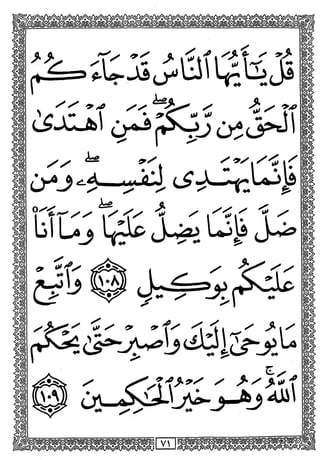 قُلْ يَٰٓأَيُّهَا ٱلنَّاسُ قَدْ جَآءَكُمُ
ٱلْحَقُّ مِن رَّبِّكُمْ ۖ فَمَنِ ٱهْتَدَىٰ
فَإِنَّمَا يَهْتَدِى لِنَفْسِهِۦ ۖ وَمَن
ضَلَّ فَإِنَّمَا يَضِلُّ عَلَيْهَا ۖ وَمَآ أَنَا۠
عَلَيْكُم بِوَكِيلٍ ١٠٨ وَٱتَّبِعْ
مَا يُوحَىٰٓ إِلَيْكَ وَٱصْبِرْ حَتَّىٰ يَحْكُمَ
ٱللَّهُ ۚ وَهُوَ خَيْرُ ٱلْحَٰكِمِينَ ١٠٩
٧١